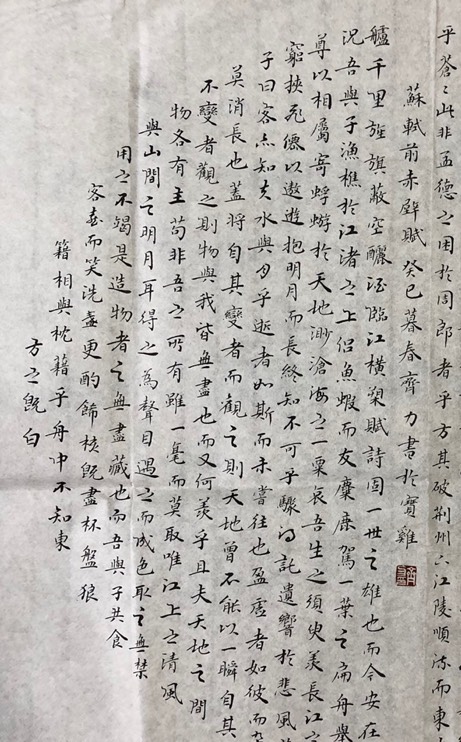 乎蒼々此非孟德之困於周郎者乎方其破荆州下江陵順流而東
蘇軾前赤壁賦 癸巳暮春齊力書於寶雞
艫千里旌旗蔽空釃酒臨江橫槊賦詩固一世之雄也而今安在
況吾與子漁樵於江渚之上侶魚蝦而友麋鹿駕一葉之扁舟舉
尊以相屬寄蜉蝣於天地渺滄海之一粟哀吾生之須臾羡長江
窮挾飛僊以遨遊抱明月而長終知不可乎驟得託遺響於悲風
子曰客亦知夫水與月乎逝者如斯而未嘗往也盈虛者如彼而
莫消長也蓋將自其變者而觀之則天地曾不能以一瞬自其
不變者觀之則物與我皆無盡也而又何羨乎且夫天地之間
物各有主苟非吾之所有雖一毫而莫取唯江上之清風
與山間之明月耳得之為聲目遇之而成色取之無禁
用之不竭是造物者之無盡藏也而吾與子共食
客喜而笑洗盞更酌餚核既盡杯盤狼
籍相與枕藉乎舟中不知東
方之既白